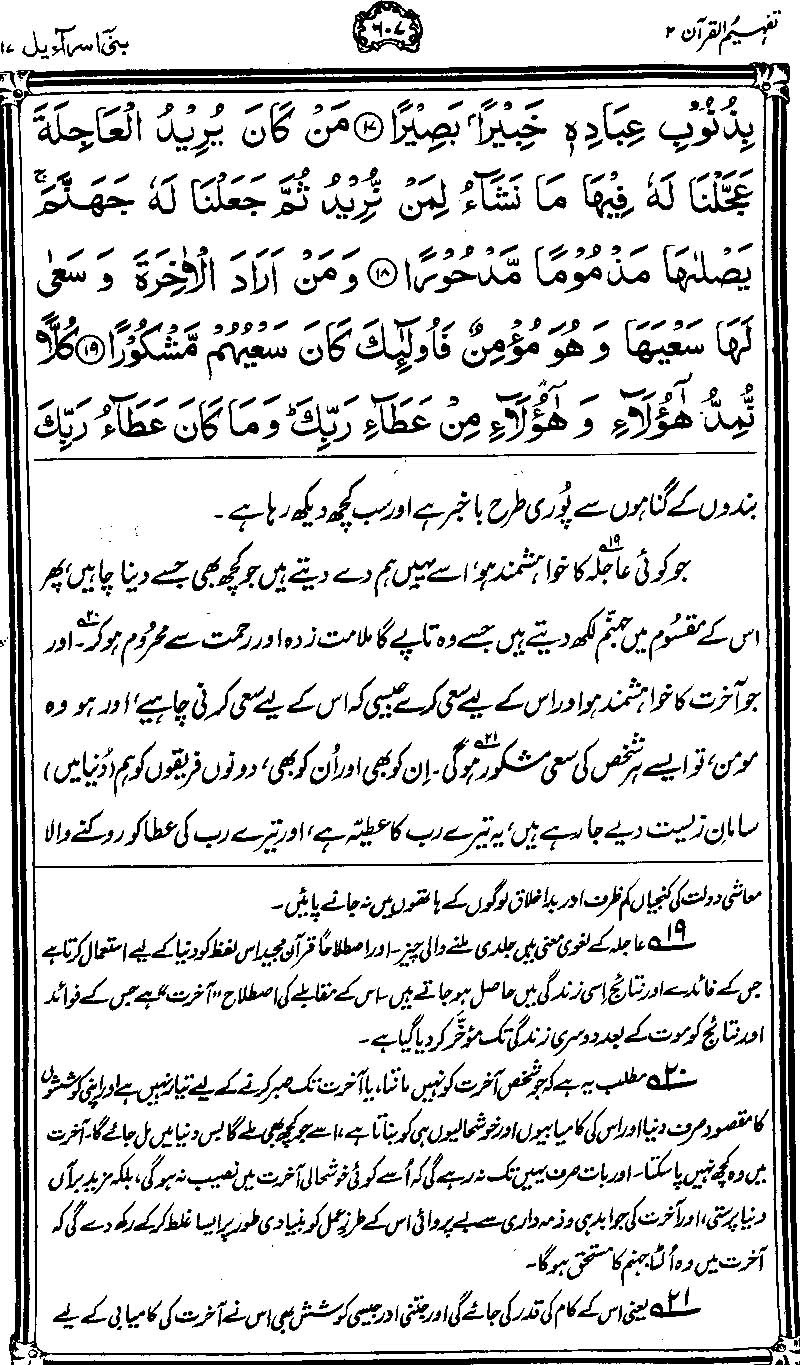 تفہیم القرآن ۲
۶۰۷
بنیٓ اسرآءیل ۱۷
بِذُنُوْبِ عِبَادِهٖ خَبِيْرًۢا بَصِيْرًا ﴿۱۷﴾ مَنْ كَانَ يُرِيْدُ الْعَاجِلَةَ
عَجَّلْنَا لَهٗ فِيْهَا مَا نَشَآءُ لِمَنْ نُّرِيْدُ ثُمَّ جَعَلْنَا لَهٗ جَهَنَّمَ ۚ
يَصْلٰىهَا مَذْمُوْمًا مَّدْحُوْرًا ﴿۱۸﴾ وَمَنْ اَرَادَ الْاٰخِرَةَ وَ سَعٰى
لَهَا سَعْيَهَا وَ هُوَ مُؤْمِنٌ فَاُولٰٓئِكَ كَانَ سَعْيُهُمْ مَّشْكُوْرًا ﴿۱۹﴾ كُلًّا
نُّمِدُّ هٰٓؤُلَآءِ وَ هٰٓؤُلَآءِ مِنْ عَطَآءِ رَبِّكَ ؕ وَمَا كَانَ عَطَآءُ رَبِّكَ
بندوں کے گناہوں سے پُوری طرح باخبر ہے اور سب کچھ دیکھ رہا ہے۔
جو کوئی عاجلہ ۱۹؎ کا خواہشمند ہو، اسے یہیں ہم دے دیتے ہیں جو کچھ بھی جسے دینا چاہیں، پھر
اس کے مقسُوم میں جہنّم لکھ دیتے ہیں جسے وہ تاپے گا ملامت زدہ اور رحمت سے محرُوم ہو کر۔ ۲۰؎ اور
جو آخرت کا خواہشمند ہو اور اس کے لیے سعی کرے جیسی کہ اس کے لیے سعی کرنی چاہیے، اور ہو وہ
مومن، تو ایسے ہر شخص کی سعی مشکور ۲۱؎ ہوگی۔ اِن کو بھی اور اُن کو بھی، دونوں فریقوں کو ہم (دُنیا میں)
سامانِ زیست دیے جا رہے ہیں، یہ تیرے رب کا عطیّہ ہے، اور تیرے رب کی عطا کو روکنے والا
معاشی دولت کی کنجیاں کم ظرف اور بد اخلاق لوگوں کے ہاتھوں میں نہ جانے پائیں۔
۱۹؎ عاجلہ کے لغوی معنی ہیں جلدی ملنے والی چیز۔ اور اصطلاحاً قرآن مجید اس لفظ کو دنیا کے لیے استعمال کرتا ہے
جس کے فائدے اور نتائج اِسی زندگی میں حاصل ہو جاتے ہیں۔ اس کے مقابلے کی اصطلاح ”آخرت“ ہے جس کے فوائد
اور نتائج کو موت کے بعد دوسری زندگی تک مؤخّر کر دیا گیا ہے۔
۲۰؎ مطلب یہ ہے کہ جو شخص آخرت کو نہیں مانتا، یا آخرت تک صبر کرنے کے لیے تیار نہیں ہے اور اپنی کوششوں
کا مقصود صرف دنیا اور اس کی کامیابیوں اور خوشحالیوں ہی کو بناتا ہے، اسے جو کچھ بھی ملے گا بس دنیا میں مل جائے گا۔ آخرت
میں وہ کچھ نہیں پا سکتا۔ اور بات صرف یہیں تک نہ رہے گی کہ اُسے کوئی خوشحالی آخرت میں نصیب نہ ہوگی، بلکہ مزید برآں
دنیا پرستی، اور آخرت کی جوابدہی و ذمہ داری سے بے پروائی اس کے طرزِ عمل کو بنیادی طور پر ایسا غلط کر کے رکھ دے گی کہ
آخرت میں وہ اُلٹا جہنم کا مستحق ہوگا۔
۲۱؎ یعنی اس کے کام کی قدر کی جائے گی اور جتنی اور جیسی کوشش بھی اس نے آخرت کی کامیابی کے لیے